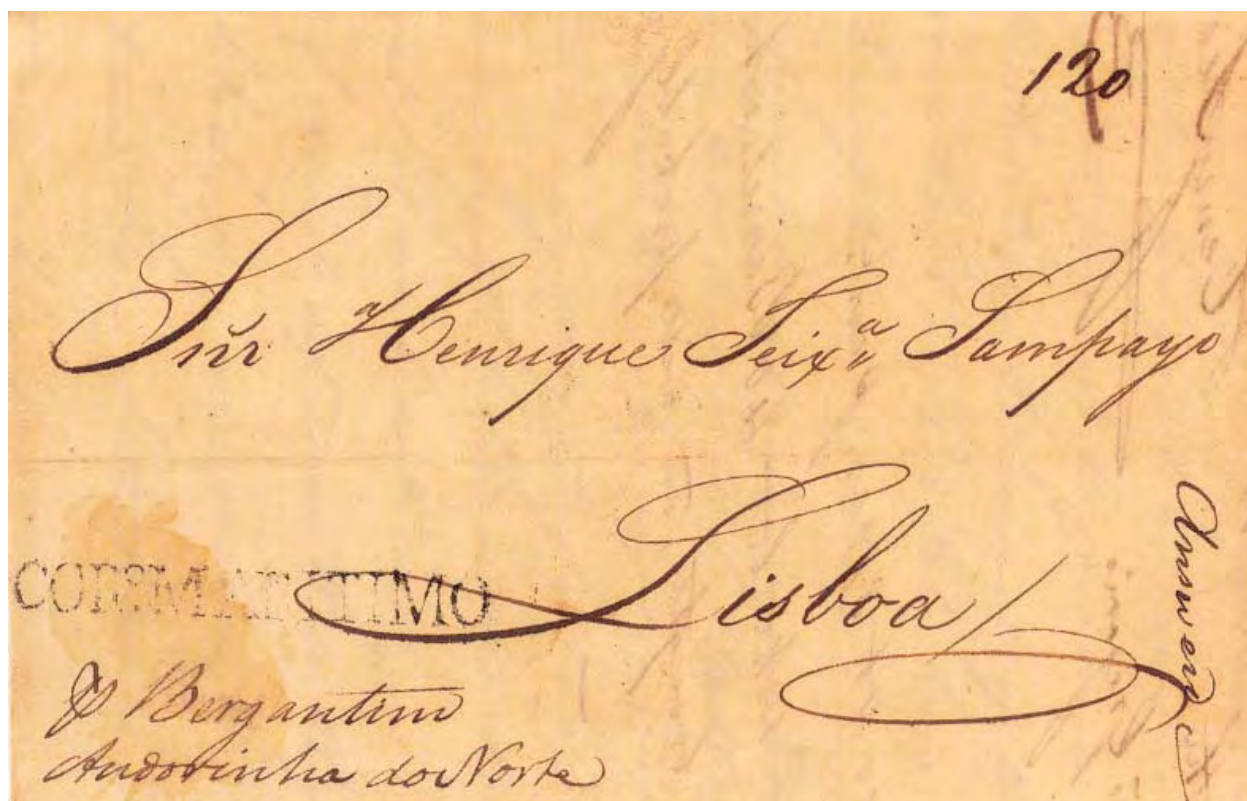 120
Snr Henrique Seixa Sampayo
Lisboa
CORº MARITIMO
P Bergantim
Andorinha do Norte
Answerd